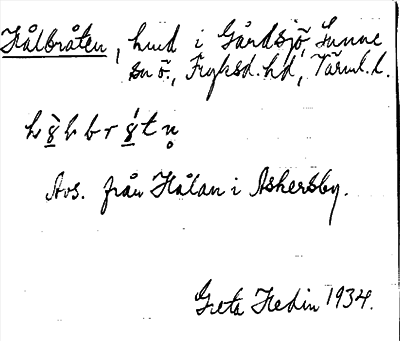 Hålbråten, hmd i Gårdsjö, Sunne
sn ö., Fryksd. hd, Värml. l.
Avs. från Hålan i Askersby.
Greta Hedin 1934.